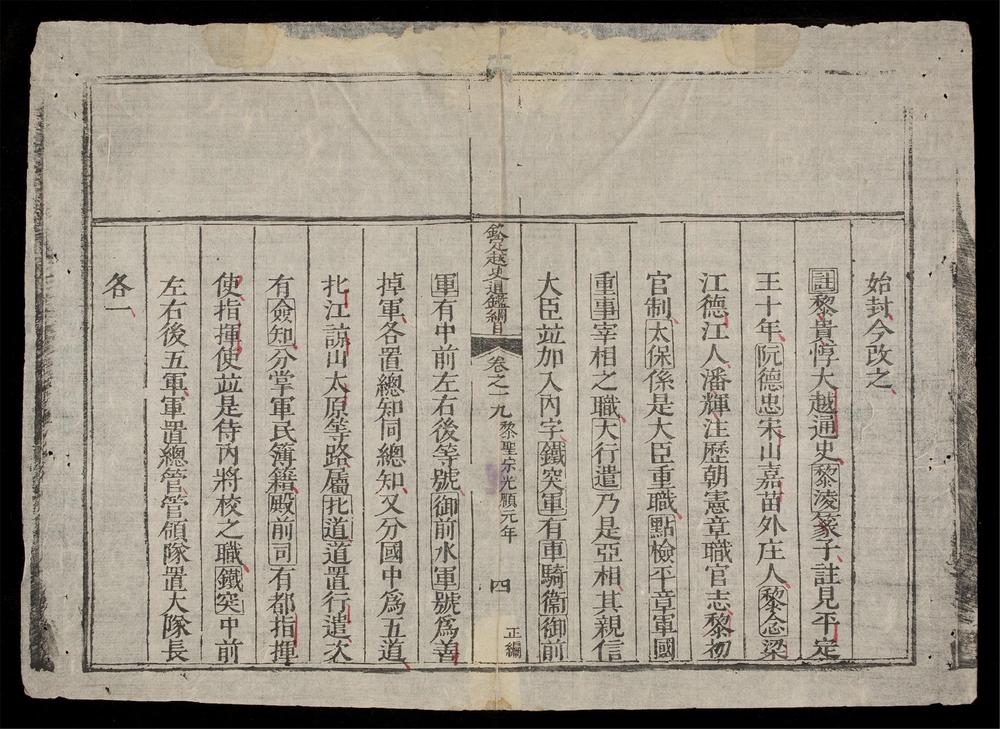 始封今改之
註黎貴惇大越通史黎淩篆子註見平定
王十年阮德忠宋山嘉苗外庄人黎念梁
江德江人潘輝注歷朝憲章職官志黎初
官制太保係是大臣重職點檢平章軍國
重事宰相之職大行遣乃是亞相其親信
大臣竝加入內字鐵突軍有車騎衞御前
欽定越史通鑑綱目 卷之十九 黎聖宗光順元年 四 正編
軍有中前左右後等號御前水軍號爲善
掉軍各置總知同總知又分國中爲五道
北江諒山太原等路屬北道道置行遣次
有僉知分掌軍民簿籍殿前司有都指揮
使指揮使竝是侍內將校之職鐵突中前
左右後五軍軍置總管管領隊置大隊長
各一